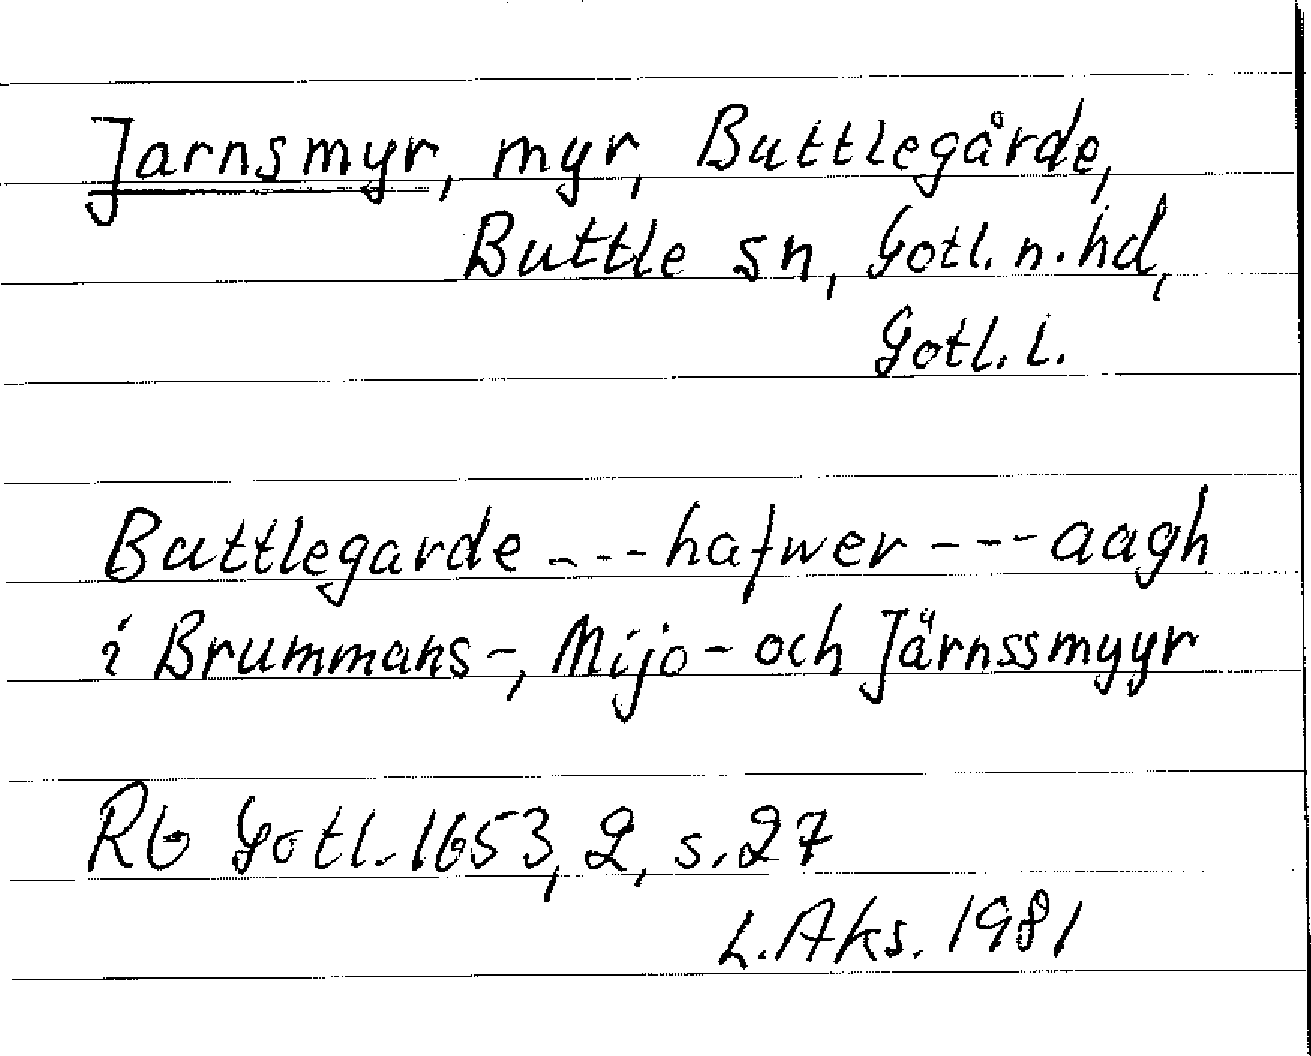 Jarnsmyr, myr, Buttlegårde,
Buttle sn, Gotl. n. hd,
Gotl. l.
Buttlegarde --- hafwer --- aagh
i Brummans-, Mijo- och Järnssmyyr
Rb Gotl. 1653, 2, s. 27
L. Aks. 1981